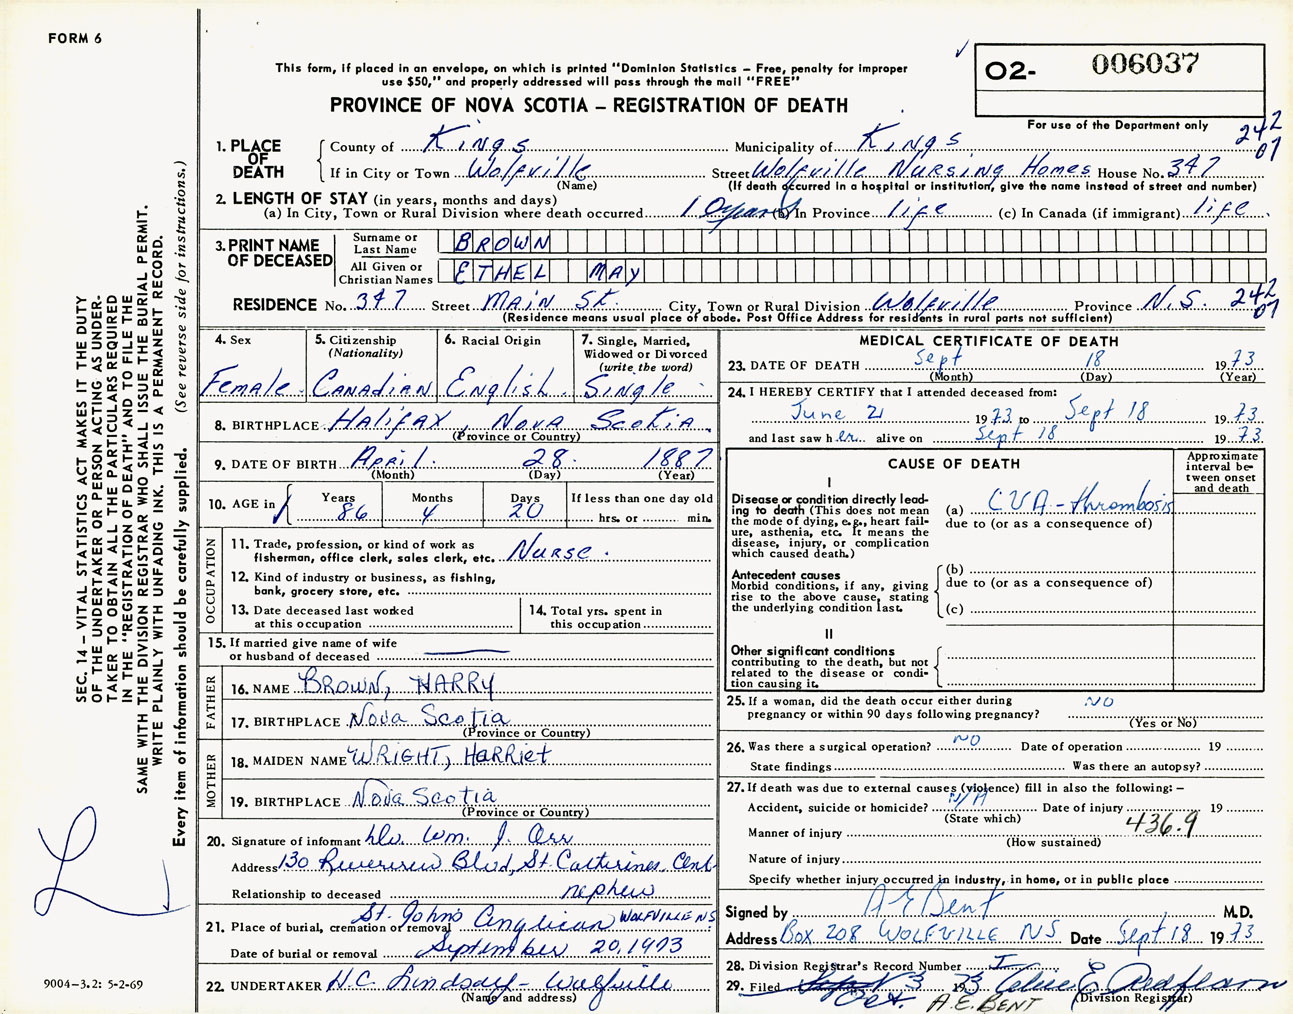 FORM 6
This form, if placed in an envelope, on which is printed "Dominion Statistics – Free, penalty for improper
use $50," and properly addressed will pass through the mail "FREE"
PROVINCE OF NOVA SCOTIA – REGISTRATION OF DEATH
02- 006037
For use of the Department only
242
07
1. PLACE OF DEATH
County of Kings Municipality of Kings
If in City or Town Wolfville Street Wolfville Nursing Homes House No. 347
(Name) (If death occurred in a hospital or institution, give the name instead of street and number)
2. LENGTH OF STAY (in years, months and days)
(a) In City, Town or Rural Division where death occurred 10 years (b) In Province life (c) In Canada (if immigrant) life
3. PRINT NAME OF DECEASED
Surname or Last Name BROWN
All Given or Christian Names ETHEL MAY
RESIDENCE No. 347 Street MAIN St. City, Town or Rural Division Wolfville Province N.S. 242
07
(Residence means usual place of abode. Post Office Address for residents in rural parts not sufficient)
4. Sex Female
5. Citizenship (Nationality) CANADIAN
6. Racial Origin English
7. Single, Married, Widowed or Divorced (write the word) Single
8. BIRTHPLACE Halifax, Nova Scotia
(Province or Country)
9. DATE OF BIRTH April 28 1887
(Month) (Day) (Year)
10. AGE in Years 86 Months 4 Days 20 If less than one day old
hrs. or min.
OCCUPATION
11. Trade, profession, or kind of work as
fisherman, office clerk, sales clerk, etc. Nurse.
12. Kind of industry or business, as fishing,
bank, grocery store, etc.
13. Date deceased last worked
at this occupation
14. Total yrs. spent in
this occupation
15. If married give name of wife
or husband of deceased
FATHER
16. NAME BROWN, HARRY
17. BIRTHPLACE Nova Scotia
(Province or Country)
MOTHER
18. MAIDEN NAME WRIGHT, Harriet
19. BIRTHPLACE Nova Scotia
(Province or Country)
20. Signature of informant Wm. J. Orr
Address 130 Riverview Blvd, St. Catherines, Ont
Relationship to deceased nephew
21. Place of burial, cremation or removal St. John's Anglican WOLFVILLE NS
Date of burial or removal September 20, 1973
22. UNDERTAKER H.C. Lindsay - Wolfville
(Name and address)
MEDICAL CERTIFICATE OF DEATH
23. DATE OF DEATH Sept 18 1973
(Month) (Day) (Year)
24. I HEREBY CERTIFY that I attended deceased from:
June 21 1973 to Sept 18 1973
and last saw her alive on Sept 18 1973
CAUSE OF DEATH
Approximate interval between onset and death
I
Disease or condition directly leading to death (This does not mean the mode of dying, e.g., heart failure, asthenia, etc. It means the disease, injury, or complication which caused death.)
(a) CVA - thrombosis
due to (or as a consequence of)
Antecedent causes
Morbid conditions, if any, giving rise to the above cause, stating the underlying condition last.
(b)
due to (or as a consequence of)
(c)
II
Other significant conditions
contributing to the death, but not related to the disease or condition causing it.
25. If a woman, did the death occur either during
pregnancy or within 90 days following pregnancy? NO
(Yes or No)
26. Was there a surgical operation? NO Date of operation 19
State findings Was there an autopsy?
27. If death was due to external causes (violence) fill in also the following: –
Accident, suicide or homicide? N/A Date of injury 19
(State which)
Manner of injury 436.9
(How sustained)
Nature of injury
Specify whether injury occurred in industry, in home, or in public place
Signed by A E Bent M.D.
Address Box 208 WOLFVILLE NS Date Sept 18 1973
28. Division Registrar's Record Number
29. Filed Oct. 3 1973
A.E. BENT (Division Registrar)
SEC. 14 – VITAL STATISTICS ACT MAKES IT THE DUTY
OF THE UNDERTAKER OR PERSON ACTING AS UNDER-
TAKER TO OBTAIN ALL THE PARTICULARS REQUIRED
IN THE "REGISTRATION OF DEATH" AND TO FILE THE
SAME WITH THE DIVISION REGISTRAR WHO SHALL ISSUE THE BURIAL PERMIT.
WRITE PLAINLY WITH UNFADING INK. THIS IS A PERMANENT RECORD.
Every item of information should be carefully supplied. (See reverse side for instructions.)
9004-3.2: 5-2-69